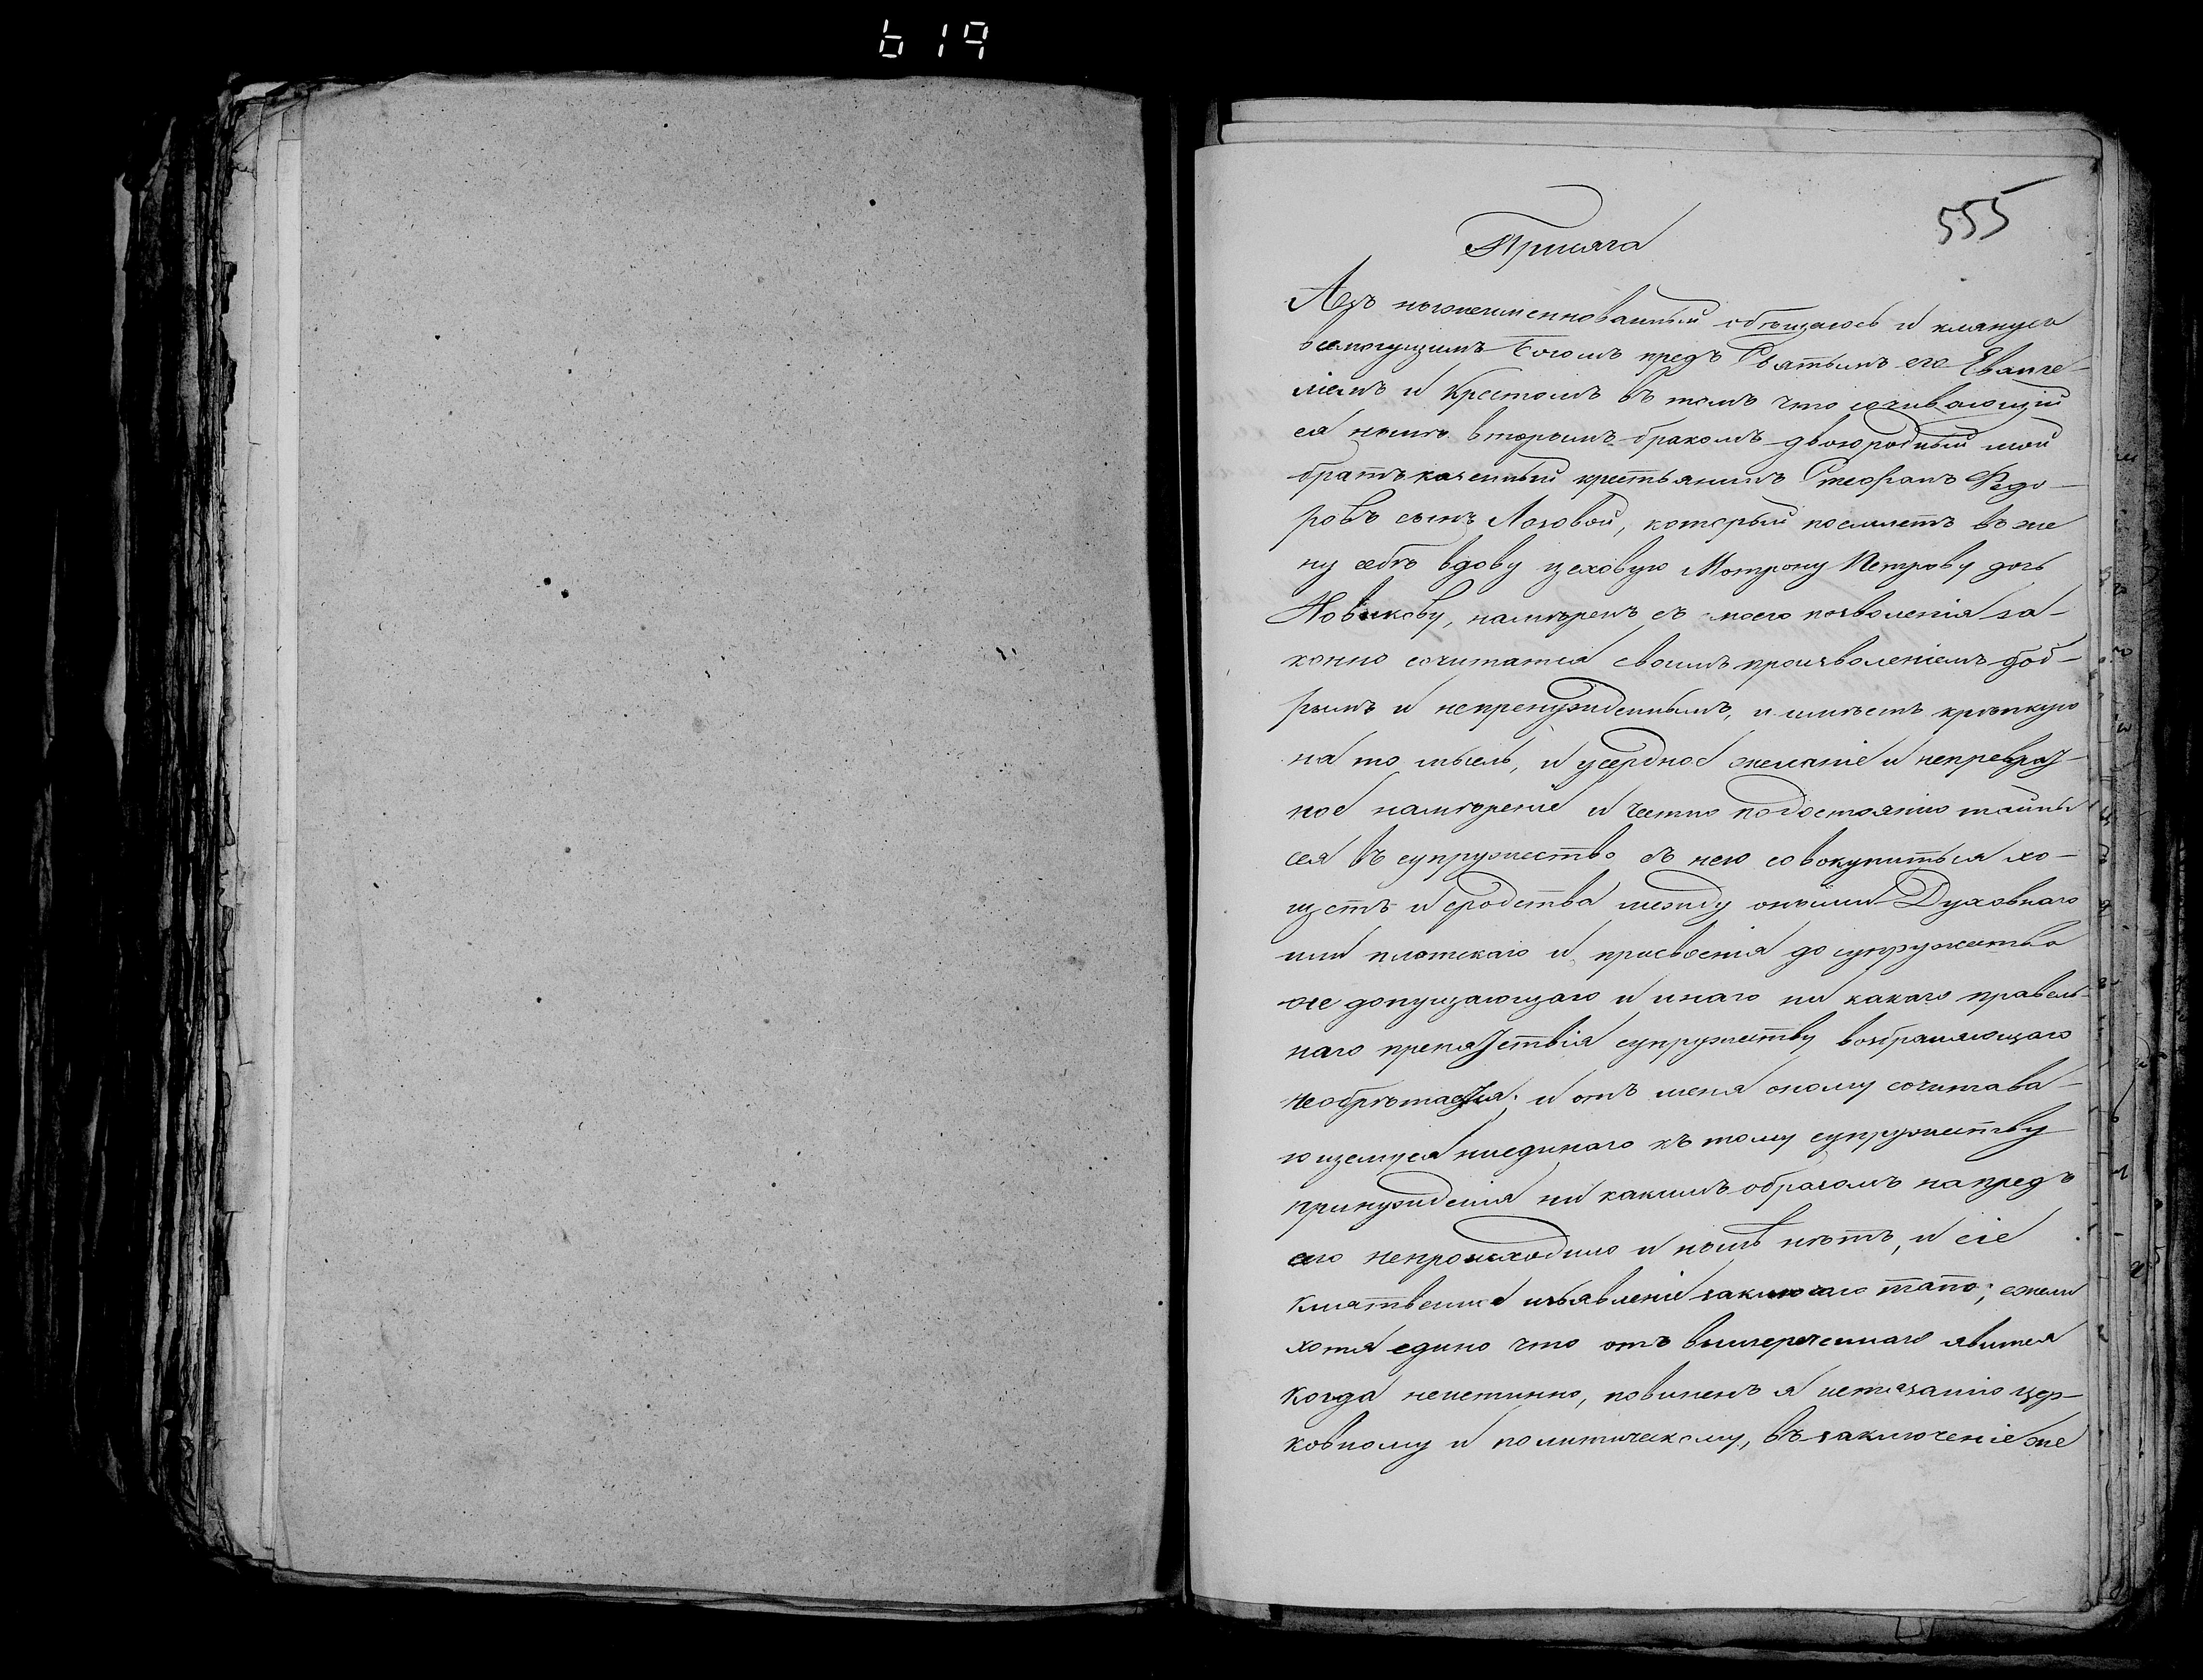 619
555
Присяга
Азъ нижеименнованный обѣщаюсь и клянусь
всемогущимъ Богомъ предъ Святымъ его Еванге-
ліемъ и Крестомъ въ томъ что сочивающій
ся нынѣ вторымъ бракомъ двоюродный мой
братъ казенный крестьянинъ Стефанъ Федо-
ровъ сынъ Лозовой, который поемлетъ въ же
ну себѣ вдову цеховую Мотрону Петрову дочь
Новикову, намѣренъ съ моего позволенія за-
конно сочитатся своимъ произволеніемъ доб-
рымъ и непренужденнымъ, и имѣетъ крѣпкую
на то мысль, и усердное желаніе и непревраt-
ное намѣреніе и честно подостоянію тайны
сея въ супружество съ нею совокупиться хо-
щетъ и сродства между оными Духовнаго
или плотскаго и присвоенія до супружества
не допущающаго и инаго ни какаго правель-
наго препятствія супружеству возбраняющаго
необрѣтается, и отъ меня оному сочитава-
ющемуся ниединаго къ тому супружеству
принужденія ни какимъ образомъ напредъ
сего непроисходило и нынѣ нѣтъ, и сіе
клятвенное изъявленіе заключаю тапо; ежели
хотя едино что отъ вышереченнаго явится
когда неистинно, повиненъ я истязанію цер-
ковному и политическому, въ заключеніе же